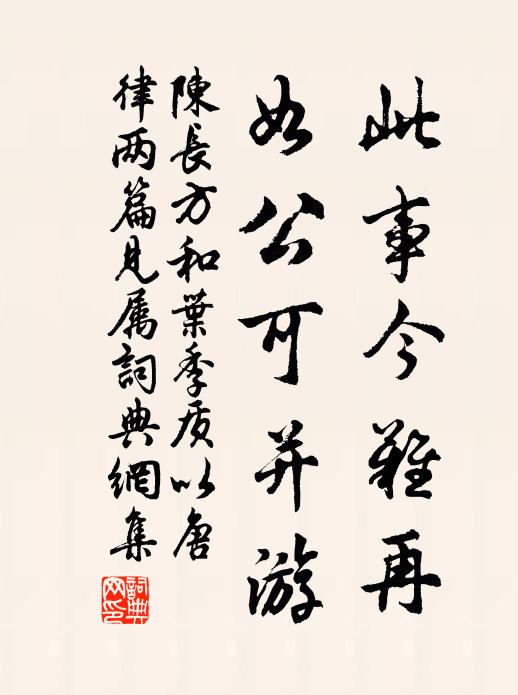 此事今難再
如公可并游
陳長方和葉季质以唐
律两篇見属詞典網集
詞典网印